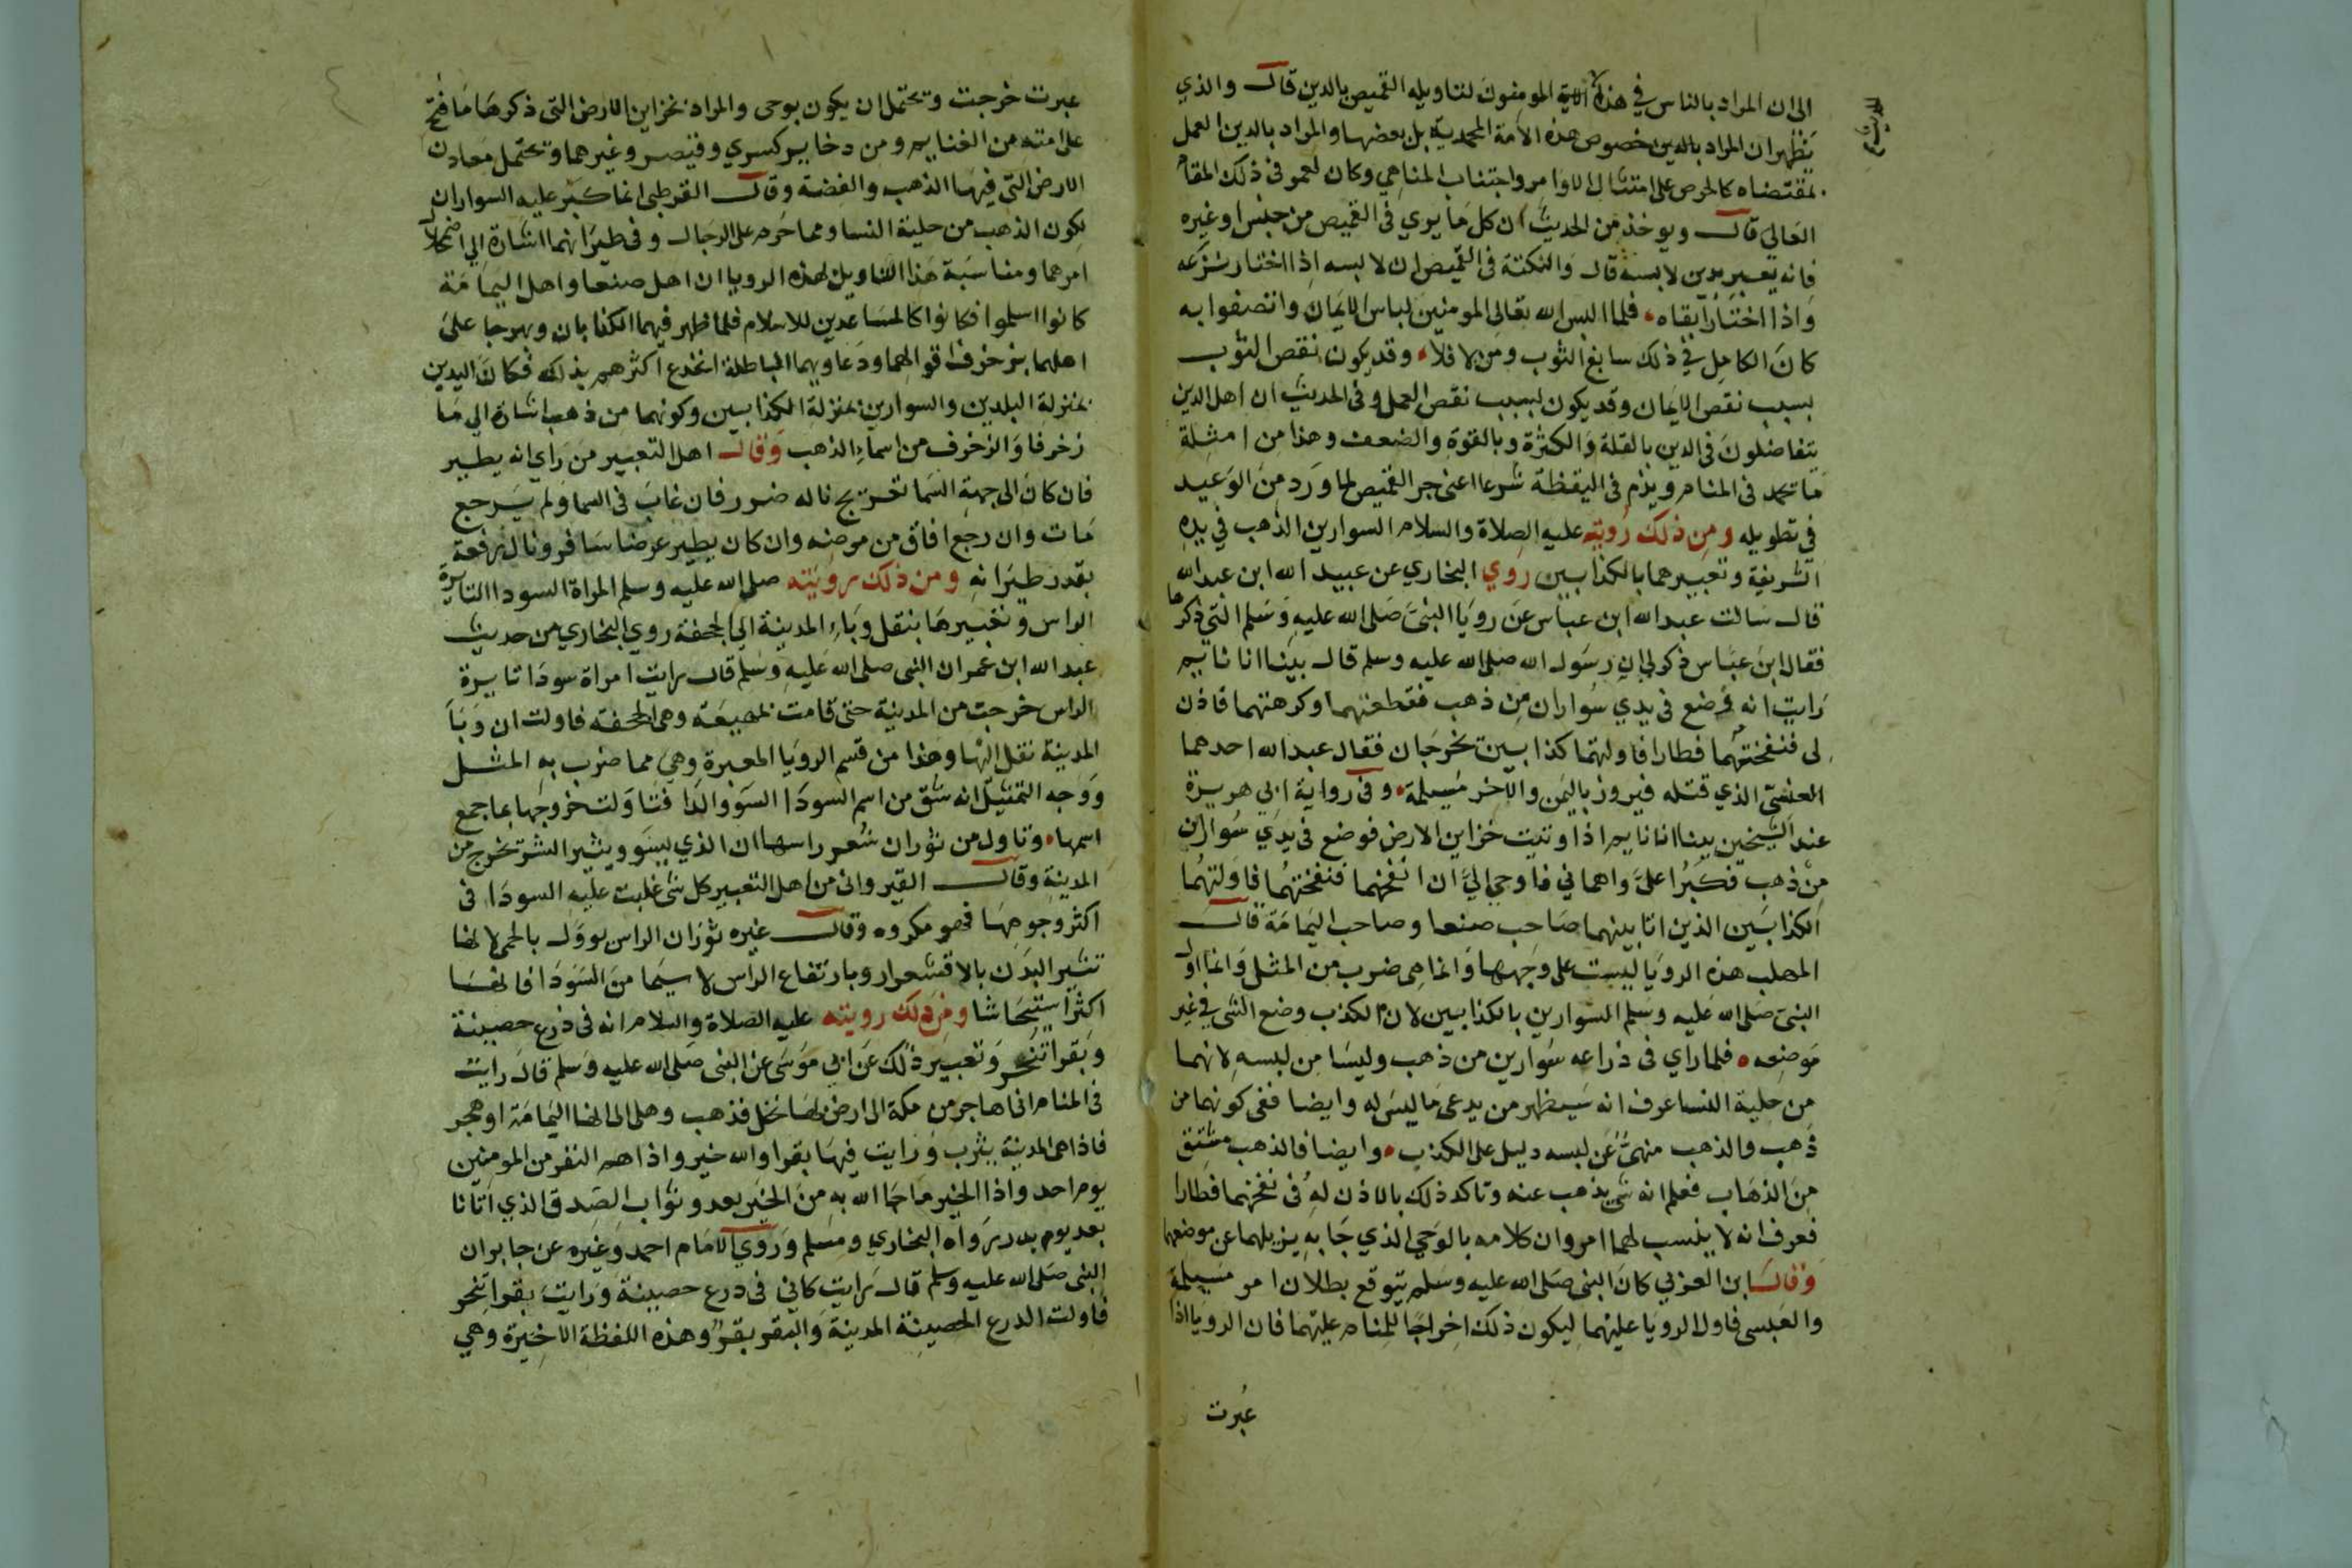 الى ان المراد بالناس في هذه الاية المومنون لتاويله القميص بالدين قال والذي
يظهر ان المراد بالدين خصوص هذه الامة المحمدية بل بعضها والمراد بالدين العمل
بمقتضاه كالحرص على امتثال الاوامر واجتناب المناهي وكان لعمر في ذلك المقام
العالي قال ويوخذ من الحديث ان كل ما يري في القميص من حسن او غيره
فانه يعبر بدين لابسه قال والنكتة في القميص ان لابسه اذا اختار نزعه
واذا اختار ابقاه فلما البس الله تعالى المومنين لباس الايمان واتصفوا به
كان الكامل في ذلك سابغ الثوب ومن لا فلا وقد يكون نقص الثوب
بسبب نقص الايمان وقد يكون بسبب نقص العمل وفي الحديث ان اهل الدين
يتفاضلون في الدين بالقلة والكثرة وبالقوة والضعف وهذا من امثلة
ما يحمد في المنام ويذم في اليقظة شرعا اعني جر القميص لما ورد من الوعيد
في تطويله ومن ذلك رويته عليه الصلاة والسلام السوارين الذهب في يده
الشريفة وتعبيرهما بالكذابين روي البخاري عن عبيد الله ابن عبد الله
قال سالت عبد الله ابن عباس عن رويا النبي صلى الله عليه وسلم التي ذكرها
فقال ابن عباس ذكر لي ان رسول الله صلى الله عليه وسلم قال بينا انا نائم
رايت انه وضع في يدي سواران من ذهب فقطعتهما وكرهتهما فاذن
لي فنفختهما فطارا فاولتهما كذابين يخرجان فقال عبد الله احدهما
العنسي الذي قتله فيروز باليمن والاخر مسيلمة وفي رواية ابي هريرة
عند الشيخين بينا انا نايم اذ اوتيت خزاين الارض فوضع في يدي سواران
من ذهب فكبرا علي واهماني فاوحي الي ان انفخهما فنفختهما فاولتهما
الكذابين الذين انا بينهما صاحب صنعا وصاحب اليمامة قال
المهلب هذه الرويا ليست على وجهها وانما هي ضرب من المثل وانما اول
النبي صلى الله عليه وسلم السوارين بالكذابين لان الكذب وضع الشي في غير
موضعه فلما راي في ذراعه سوارين من ذهب وليسا من لبسه لانهما
من حلية النسا عرف انه سيظهر من يدعي ما ليس له وايضا ففي كونهما من
ذهب والذهب منهي عن لبسه دليل على الكذب وايضا فالذهب مشتق
من الذهاب فعلم انه شي يذهب عنه وتاكد ذلك بالاذن له في نفخهما فطارا
فعرف انه لا ينسب لهما امر وان كلامه بالوحي الذي جا به يزيلهما عن موضعهما
وقال ابن العربي كان النبي صلى الله عليه وسلم يتوقع بطلان امر مسيلمة
والعبسي فاول الرويا عليهما ليكون ذلك اخراجا للمنام عليهما فان الرويا اذا
عبرت
عبرت خرجت ويحتمل ان يكون بوحي والمراد بخزاين الارض التي ذكرها ما فتح
على امته من الغنايم ومن دخاير كسري وقيصر وغيرهما ويحتمل معادن
الارض التي فيها الذهب والفضة وقال القرطبي انما كبر عليه السواران
لكون الذهب من حلية النسا ومما حرم على الرجال وفي طيرانهما اشارة الي اضمحلال
امرهما ومناسبة هذا التاويل لهذه الرويا ان اهل صنعا واهل اليمامة
كانوا اسلموا فكانوا كالمساعدين للاسلام فلما ظهر فيهما الكذابان وبهرجا على
اهلهما بزخرف اقوالهما ودعاويهما الباطلة انخدع اكثرهم بذلك فكان اليدين
بمنزلة البلدين والسوارين بمنزلة الكذابين وكونهما من ذهب اشارة الي ما
زخرفا والزخرف من اسماء الذهب وقال اهل التعبير من راي انه يطير
فان كان الى جهة السما تعريج ناله ضرر فان غاب في السما ولم يرجع
مات وان رجع افاق من مرضه وان كان يطير عرضا سافر ونال رفعة
بقدر طيرانه ومن ذلك رويته صلى الله عليه وسلم المراة السودا الثايرة
الراس وتعبيرها بنقل وباء المدينة الي الجحفة روي البخاري من حديث
عبد الله ابن عمر ان النبي صلى الله عليه وسلم قال رايت امراة سودا ثايرة
الراس خرجت من المدينة حتى قامت بمهيعة وهي الجحفة فاولت ان وبا
المدينة نقل اليها وهذا من قسم الرويا المعبرة وهي مما ضرب به المثل
ووجه التمثيل انه شق من اسم السودا السو والدا فتاولت خروجها بما جمع
اسمها وتاول من ثوران شعر راسها ان الذي يسو ويثير الشر تخرج من
المدينة وقال القيرواني من اهل التعبير كل شي غلبت عليه السودا في
اكثر وجوهها فهو مكروه وقال غيره ثوران الراس يوول بالحمى لانها
تثير البدن بالاقشعرار وبارتفاع الراس لا سيما من السودا فانها
اكثر استيحاشا ومن ذلك رويته عليه الصلاة والسلام انه في درع حصينة
وبقرا تنحر وتعبير ذلك عن ابي موسى عن النبي صلى الله عليه وسلم قال رايت
في المنام اني اهاجر من مكة الى ارض بها نخل فذهب وهلي الى انها اليمامة او هجر
فاذا هي المدينة يثرب ورايت فيها بقرا والله خير واذا هم النفر من المومنين
يوم احد واذا الخير ما جا الله به من الخير بعد وثواب الصدق الذي اتانا
بعد يوم بدر رواه البخاري ومسلم وروي الامام احمد وغيره عن جابر ان
النبي صلى الله عليه وسلم قال رايت كاني في درع حصينة ورايت بقرا تنحر
فاولت الدرع الحصينة المدينة والبقر بقر وهذه اللفظة الاخيرة وهي